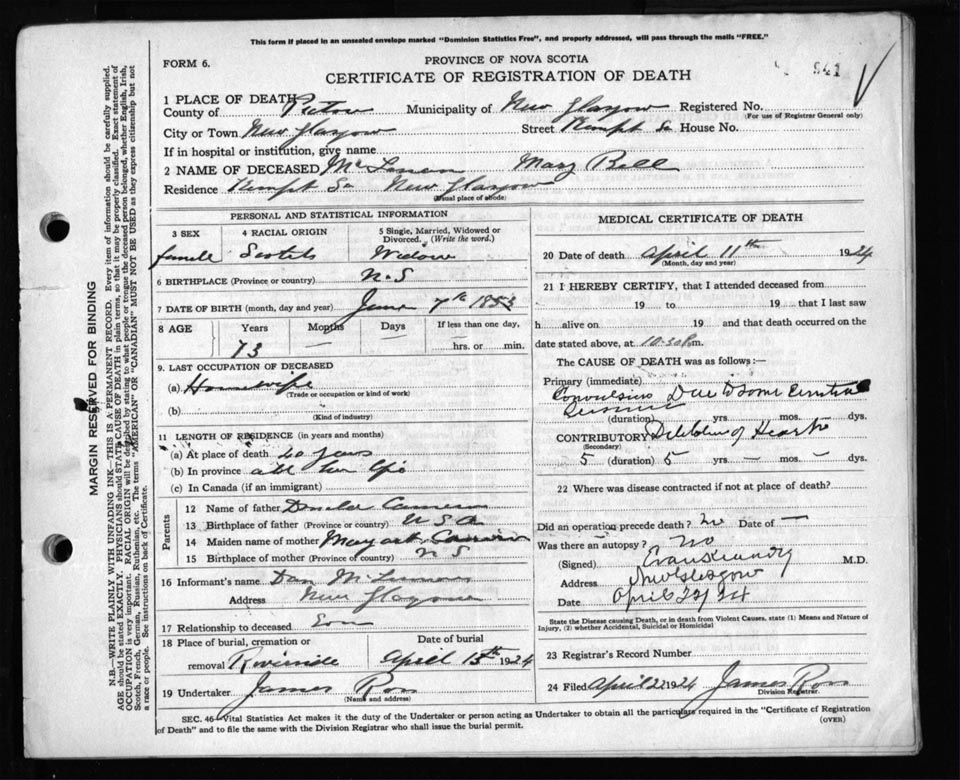 This form if placed in an unsealed envelope marked "Dominion Statistics Free", and properly addressed, will pass through the mails "FREE."
FORM 6.
PROVINCE OF NOVA SCOTIA
CERTIFICATE OF REGISTRATION OF DEATH
541
1 PLACE OF DEATH
County of Pictou Municipality of New Glasgow Registered No.
(For use of Registrar General only)
City or Town New Glasgow Street Kempt St House No.
If in hospital or institution, give name
2 NAME OF DECEASED Mary Bell
Residence Kempt St New Glasgow
(Usual place of abode)
PERSONAL AND STATISTICAL INFORMATION
3 SEX 4 RACIAL ORIGIN 5 Single, Married, Widowed or Divorced. (Write the word.)
female Scotch Widow
6 BIRTHPLACE (Province or country) N.S
7 DATE OF BIRTH (month, day and year) June 7th
8 AGE Years Months Days If less than one day,
73 — — hrs. or min.
9. LAST OCCUPATION OF DECEASED
(a) Housewife
(Trade or occupation or kind of work)
(b)
(Kind of industry)
11 LENGTH OF RESIDENCE (in years and months)
(a) At place of death 20 years
(b) In province all her life
(c) In Canada (if an immigrant)
Parents
12 Name of father Donald Cameron
13 Birthplace of father (Province or country) U S A
14 Maiden name of mother Margaret
15 Birthplace of mother (Province or country) N S
16 Informant's name Dan
Address New Glasgow
17 Relationship to deceased Son
18 Place of burial, cremation or removal Riverside
Date of burial April 13th 1924
19 Undertaker James Ross
(Name and address)
MEDICAL CERTIFICATE OF DEATH
20 Date of death April 11th 1924
(Month, day and year)
21 I HEREBY CERTIFY, that I attended deceased from
19 to 19 that I last saw
h alive on 19 and that death occurred on the
date stated above, at 10.30 p.m.
The CAUSE OF DEATH was as follows:—
Primary (immediate)
Convulsions Due to some
(duration) yrs. — mos. — dys.
CONTRIBUTORY Dilatation of Heart
(Secondary)
5 (duration) 5 yrs. — mos. — dys.
22 Where was disease contracted if not at place of death?
Did an operation precede death? no Date of —
Was there an autopsy? no
(Signed) M.D.
Address New Glasgow
Date April 22/24
State the Disease causing Death, or in death from Violent Causes, state (1) Means and Nature of Injury, (2) whether Accidental, Suicidal or Homicidal
23 Registrar's Record Number
24 Filed April 22 1924 James Ross
Division Registrar.
SEC. 46—Vital Statistics Act makes it the duty of the Undertaker or person acting as Undertaker to obtain all the particulars required in the "Certificate of Registration
of Death" and to file the same with the Division Registrar who shall issue the burial permit.
(OVER)
MARGIN RESERVED FOR BINDING
N.B.—WRITE PLAINLY WITH UNFADING INK—THIS IS A PERMANENT RECORD. Every item of information should be carefully supplied.
AGE should be stated EXACTLY. PHYSICIANS should STATE CAUSE OF DEATH in plain terms, so that it may be properly classified. Exact statement of
OCCUPATION is very important. RACIAL ORIGIN will be described by stating to what people or tongue the deceased person belonged, whether English, Irish,
Scotch, French, German, Russian, Ruthenian, etc. The terms "AMERICAN" OR "CANADIAN" MUST NOT BE USED as they express citizenship but not
a race or people. See instructions on back of Certificate.